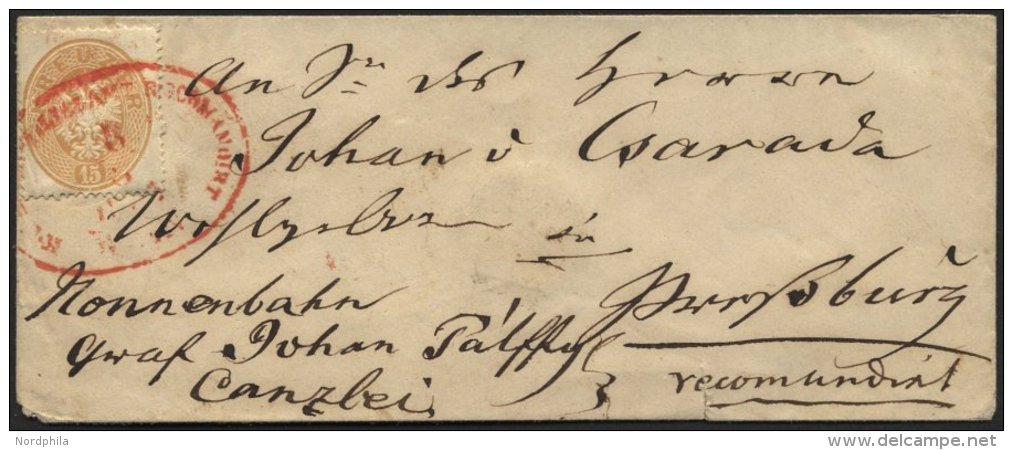 An Sr des Herrn
Johan v Csarada
Wohlgeboren
in
Pressburg
Nonnenbahn
Graf Johan Pálffy
Canzlei
recomandirt
RECOMANDIRT
15
Nordphila
www.delcampe.net